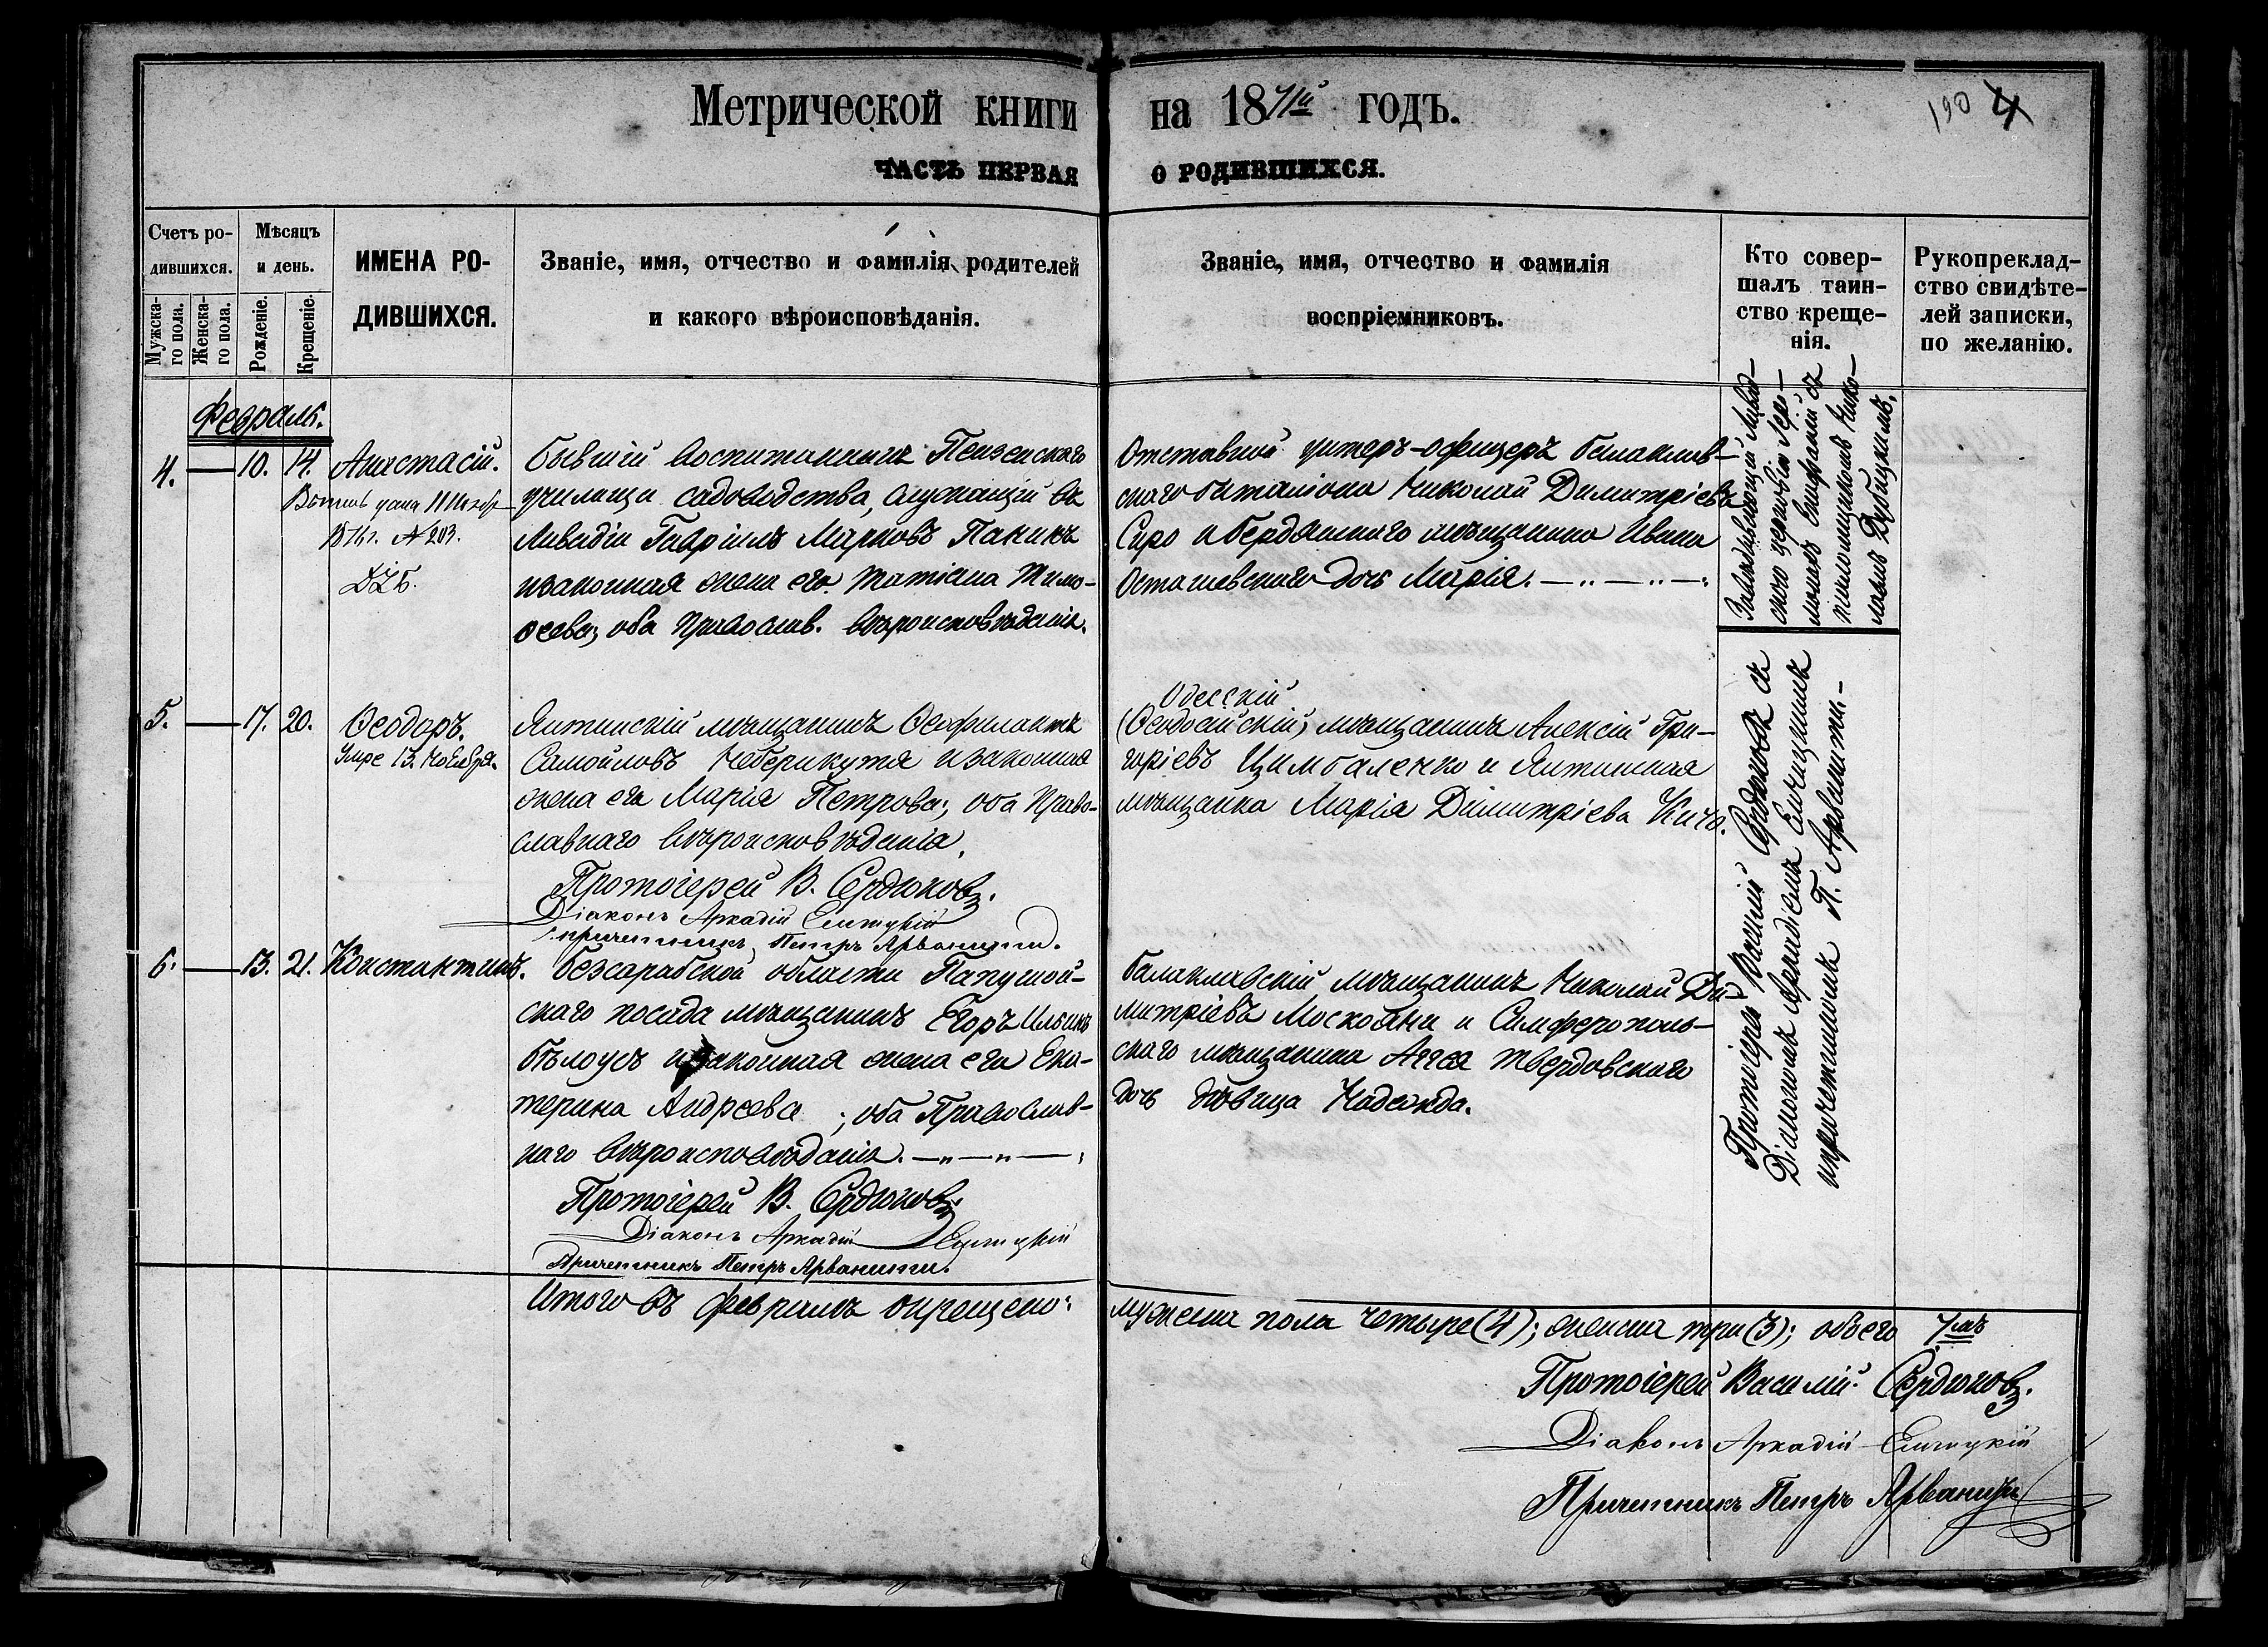 Метрической книги на 1871й годъ.
190 4
ЧАСТЬ ПЕРВАЯ О РОДИВШИХСЯ.
Счетъ ро-
дившихся.
Мужска-
го пола.
Женска-
го пола.
Мѣсяцъ
и день.
Рожденіе.
Крещеніе.
ИМЕНА РО-
ДИВШИХСЯ.
Званіе, имя, отчество и фамилія родителей
и какого вѣроисповѣданія.
Званіе, имя, отчество и фамилія
воспріемниковъ.
Кто совер-
шалъ таин-
ство креще-
нія.
Рукопреклад-
ство свидѣте-
лей записки,
по желанію.
Февраль.
4. — 10. 14. Анастасій.
№ 203.
Бывшій воспитанникъ Пензенскаго
училища садоводства, служащій въ
Ливадіи Гавріилъ Марковъ Паникъ
и законная жена его Татіана Тимо-
ѳеева; оба Православ. вѣроисповѣданія.
Отставной унтеръ-офицеръ балаклав-
скаго баталіона Николай Димитріевъ
Сиро и бердянскаго мѣщанина Ивана
Осташевскаго дочь Марія.
Завѣдывающій Ливад-
скою церковію Іеро-
монахъ Епифаній съ
псаломщикомъ Нико-
лаемъ Дубицкимъ.
5. — 17. 20. Ѳеодоръ.
Умре 13. Ноября.
Ялтинскій мѣщанинъ Ѳеофилактъ
Самойловъ Неберикутя и законная
жена его Марія Петрова; оба Право-
славнаго вѣроисповѣданія.
Протоіерей В. Сердюковъ.
Діаконъ Аркадій
причетникъ Петръ Арванити.
Одесскій
(Ѳеодосійскій) мѣщанинъ Алексій Гри-
горіевъ Цимбаленко и Ялтинская
мѣщанка Марія Димитріева Кичо.
Протоіерей Василій Сердюковъ съ
Діакономъ Аркадіемъ
и причетникомъ П. Арванити.
6. — 13. 21. Константинъ.
Бессарабской области Папушой-
скаго посада мѣщанинъ Егоръ Ильинъ
Бѣлоусъ и законная жена его Ека-
терина Андреева; оба Православ-
наго вѣроисповѣданія.
Протоіерей В. Сердюковъ.
Діаконъ Аркадій
Причетникъ Петръ Арванити.
Балаклавскій мѣщанинъ Николай Ди-
митріевъ Москояни и Симферополь-
скаго мѣщанина Аггея Твердовскаго
дочь дѣвица Надежда.
Итого въ февралѣ окрещено: мужеска пола четыре (4); женска три (3); обоего 7мь
Протоіерей Василій Сердюковъ.
Діаконъ Аркадій
Причетникъ Петръ Арванити